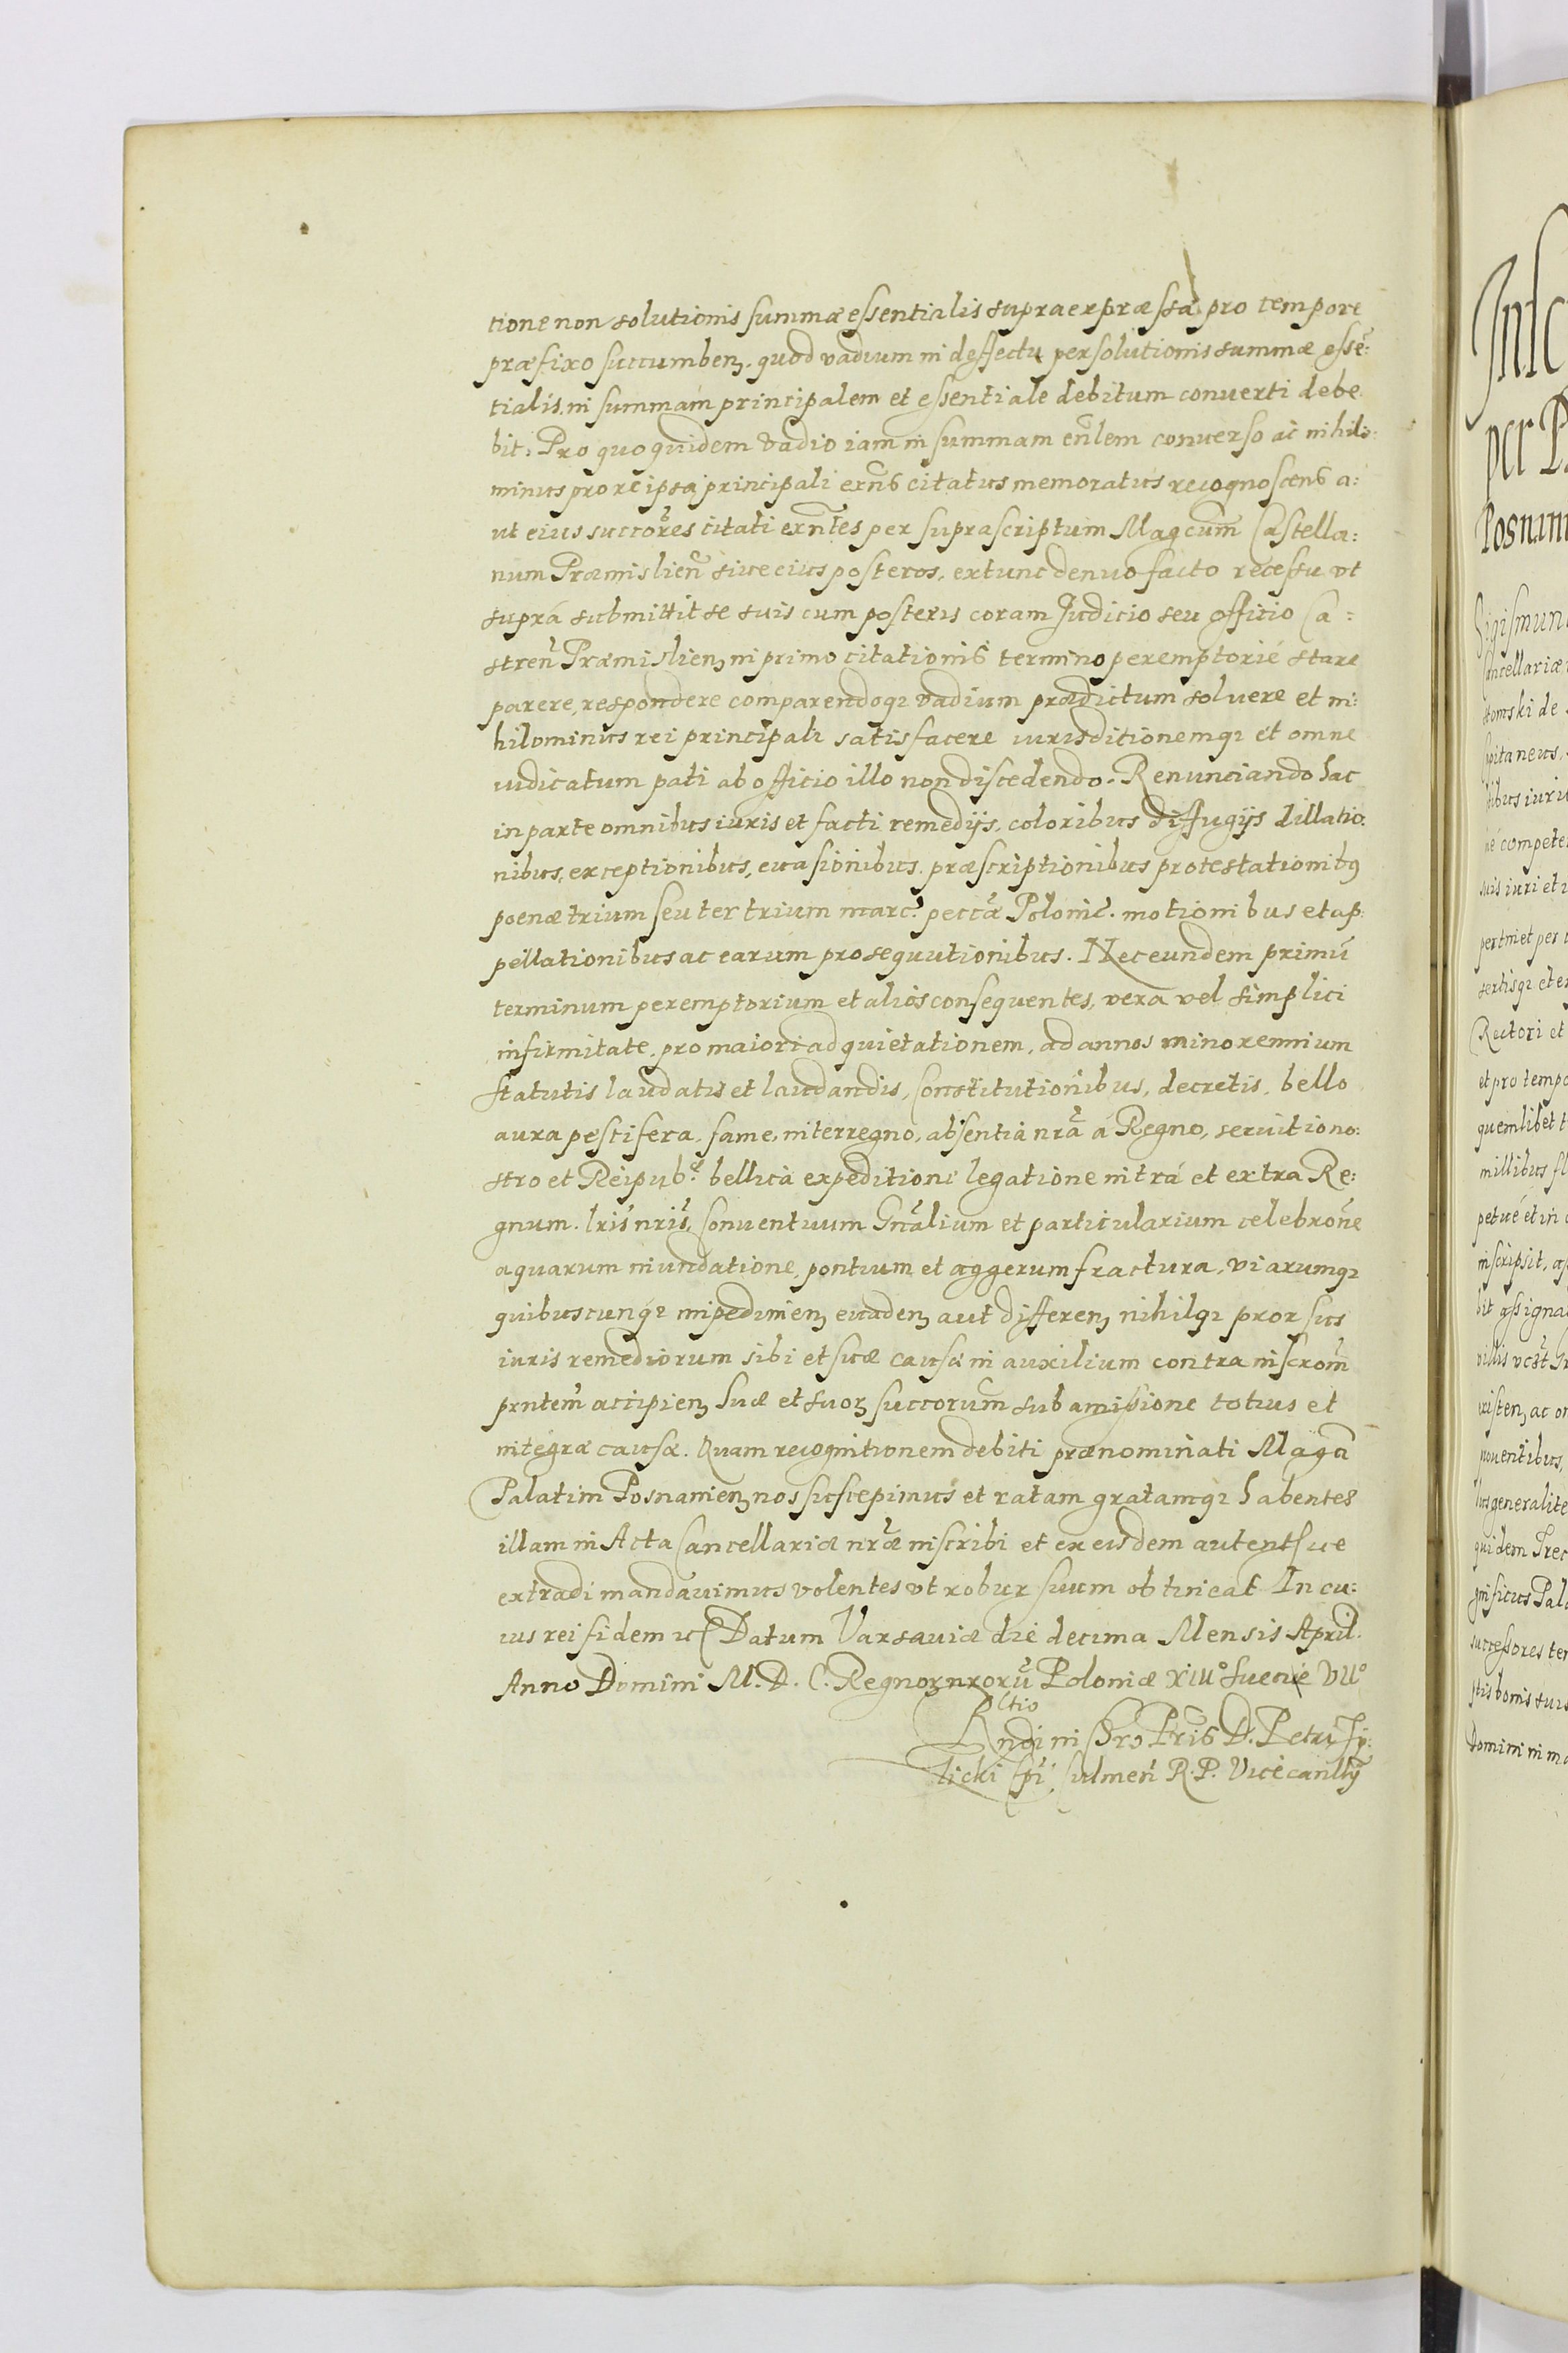 tione non solutionis summæ essentialis supraexpræssæ pro tempore
præfixo succumbenʒ. quod vadium in deffectu persolutionis summæ essẽ:
tialis, in summam principalem et essentiale debitum conuerti debe
bit: Pro quo quidem vadio iam in summam eñlem conuerso ac nihilo:
minus pro re ipsa principali exñs citatus memoratus recognoscens a:
ut eius succores citati exñtes per suprascriptum Magcum Castella:
num Præmislieñ siue eius posteros, extunc denuo facto recessu vt
suprá submittit se suis cum posteris coram Judicio seu officio Ca:
streñ Præmislienʒ in primo citationis termino peremptorié stare
parere, respondere comparendoqꝫ vadium prædictum soluere et ni:
hilominus rei principali satisfacere iurisditionemqꝫ et omne
iudicatum pati ab officio illo non discedendo. Renunciando hac
in parte omnibus iuris et facti remedijs, coloribus diffugijs dillatio:
nibus, exceptionibus, euasionibus, præscriptionibus protestationibꝰ
poenæ trium seu ter trium marc. peccã Poloniẽ. motionibus et ap:
pellationibus ac earum prosequutionibus. Nec eundem primũ
terminum peremptorium et alios consequentes, vera vel simplici
infirmitate, pro maiori ad quietationem, ad annos minorennium
statutis laudatis et laudandis, Constitutionibus, decretis, bello
aura pestifera, fame, interregno, absentia nrã á Regno, seruitio no:
stro et Reipubᵉ. bellica expeditione legatione intrá et extra Re:
gnum. lris nris, Conuentuum Gñalium et particularium celebroñe
aquarum inundatione, pontium et aggerum fractura, viarumqꝫ
quibuscunqꝫ impedimenʒ euadenʒ aut differenʒ nihilqꝫ prorsus
iuris remediorum sibi et suæ causæ in auxilium contra inscrom̃
prntem accipienʒ suæ et suoꝝ succorum sub amissione totius et
integræ causæ. Quam recognitionem debiti prænominati Magcĩ
Palatini Posnanienʒ nos suscepimus et ratam gratamqꝫ habentes
illam in Acta Cancellariæ nræ inscribi et ex eisdem autent sue
extradi mandauimus volentes vt robur suum obtineat In cu:
ius rei fidem ꝛc Datum Varsauiæ die decima Mensis April.
Anno Domini M. D. C. Regnoꝝ nrorũ Poloniæ XIIIº Sueciæ VIIº
Rltio
Rndi in Chro Pris D. Petri Ty:
licki Epi Culmeñ R. P. Vicecanllrij